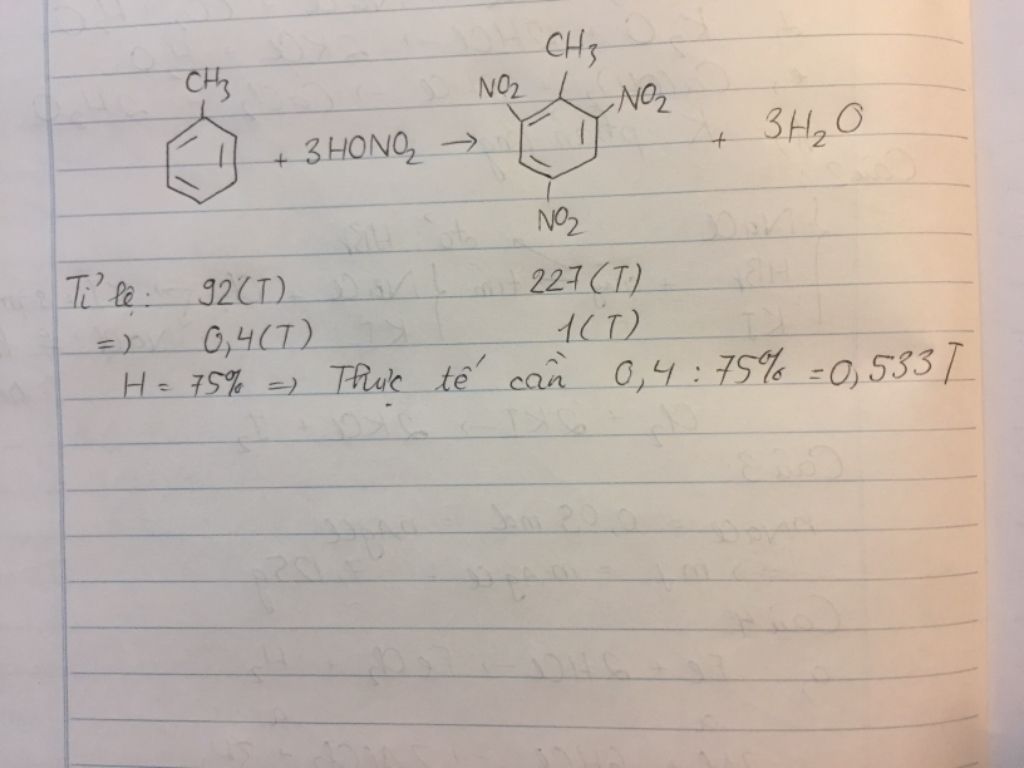 CH3 CH3
NO2 NO2
+ 3HONO2 → + 3H2O
NO2
Tỉ lệ: 92(T) 227(T)
=) 0,4(T) 1(T)
H = 75% => Thực tế cần 0,4 : 75% = 0,533T